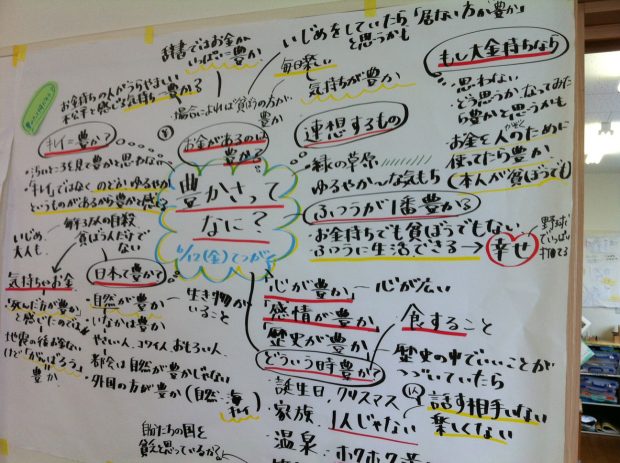 辞書ではお金が
いっぱい=豊か
いじめをしていたら「居ない方が豊か」
と思うかも
お金持ちの人がうらやましい
不公平と感じる気持ち=豊か?
毎日楽しい
気持ちが豊か
場合によれば貧ぼうの方が豊か
もし大金持ちなら
・思わない
・どう思うかなってみた
ら豊かと思うかも
お金を人のために
使ってたら豊か
(本人が貧ぼうでも)
キレイ=豊か?
お金があるのは
豊か?
連想するもの
・緑の草原
ゆるやか〜な気もち
豊かさって
なに?
6/17(金)てつがく
・汚いところを見て豊かと思わない
・「キレイ」ではなくのどか、ゆるやか
というものがあるから豊かと感じる
ふつうが1番豊か?
・お金持ちでも貧ぼうでもない
ふつうに生活できる→幸せ
野球で
いっぱい
打てる
・毎年3万人の自殺
貧ぼうな人だけで
ない
いじめ、
大人も
気持ちとお金
「死んだ方が豊か」
と感じたのでは
地震の後お金ない
けど「がんばろう」
豊か
日本て豊かて?
・自然が豊か
・いなかは豊か
やさしい人、コワイ人、おもしろい人、
・都会は自然が豊かじない
・外国の方が豊か(自然・海
キレイ)
生き物が
いること
「心が豊か」―心が広い
「感情が豊か」
「歴史が豊か」
食すること
・歴史の中でいいことが
つづいていたら
どういう時豊かて?
・誕生日、クリスマス
・家族、1人じゃない
・温泉、ホクホク
話す相手いない
楽しくない
自分たちの国を
貧乏と思っているから?